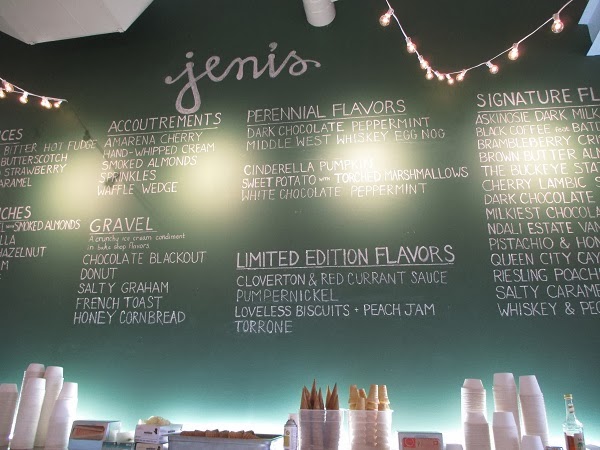 jenis
BITTER HOT FUDGE
BUTTERSCOTCH
STRAWBERRY
SMOKED ALMONDS
ACCOUTREMENTS
AMARENA CHERRY
HAND-WHIPPED CREAM
SMOKED ALMONDS
SPRINKLES
WAFFLE WEDGE
GRAVEL
A crunchy ice cream condiment
in bake shop flavors
CHOCOLATE BLACKOUT
DONUT
SALTY GRAHAM
FRENCH TOAST
HONEY CORNBREAD
PERENNIAL FLAVORS
DARK CHOCOLATE PEPPERMINT
MIDDLE WEST WHISKEY EGG NOG
CINDERELLA PUMPKIN
SWEET POTATO WITH TORCHED MARSHMALLOWS
WHITE CHOCOLATE PEPPERMINT
LIMITED EDITION FLAVORS
CLOVERTON & RED CURRANT SAUCE
PUMPERNICKEL
LOVELESS BISCUITS + PEACH JAM
TORRONE
SIGNATURE
ASKINOSIE DARK MILK
BLACK COFFEE
BRAMBLEBERRY
BROWN BUTTER
THE BUCKEYE
CHERRY LAMBIC
DARK CHOCOLATE
MILKIEST
NDALI ESTATE
PISTACHIO &
QUEEN CITY
RIESLING
SALTY
WHISKEY &